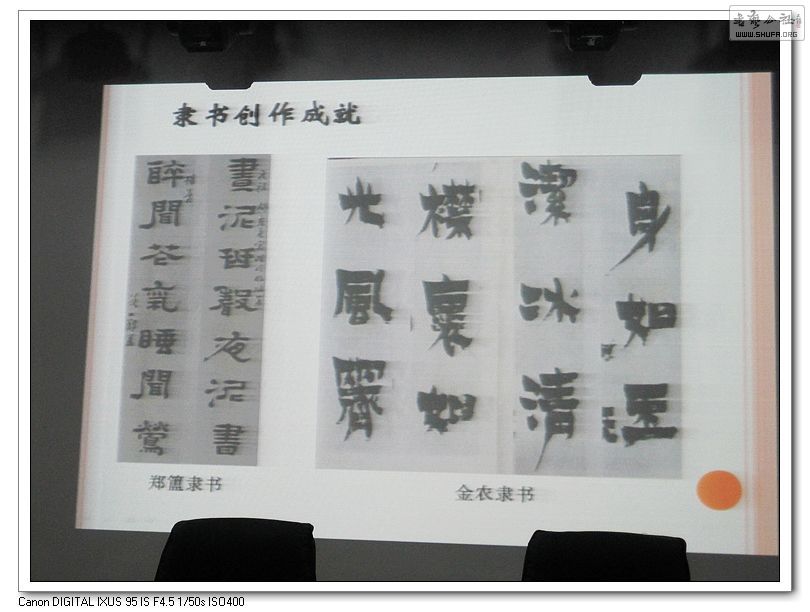 WWW.SHUFA.ORG
隶书创作成就
晝泥琴聲夜泥書
醉聞花氣睡聞鶯
身如玉
潔冰清
襟裏如
光風霽
郑簠隶书
金农隶书
Canon DIGITAL IXUS 95 IS F4.5 1/50s ISO400